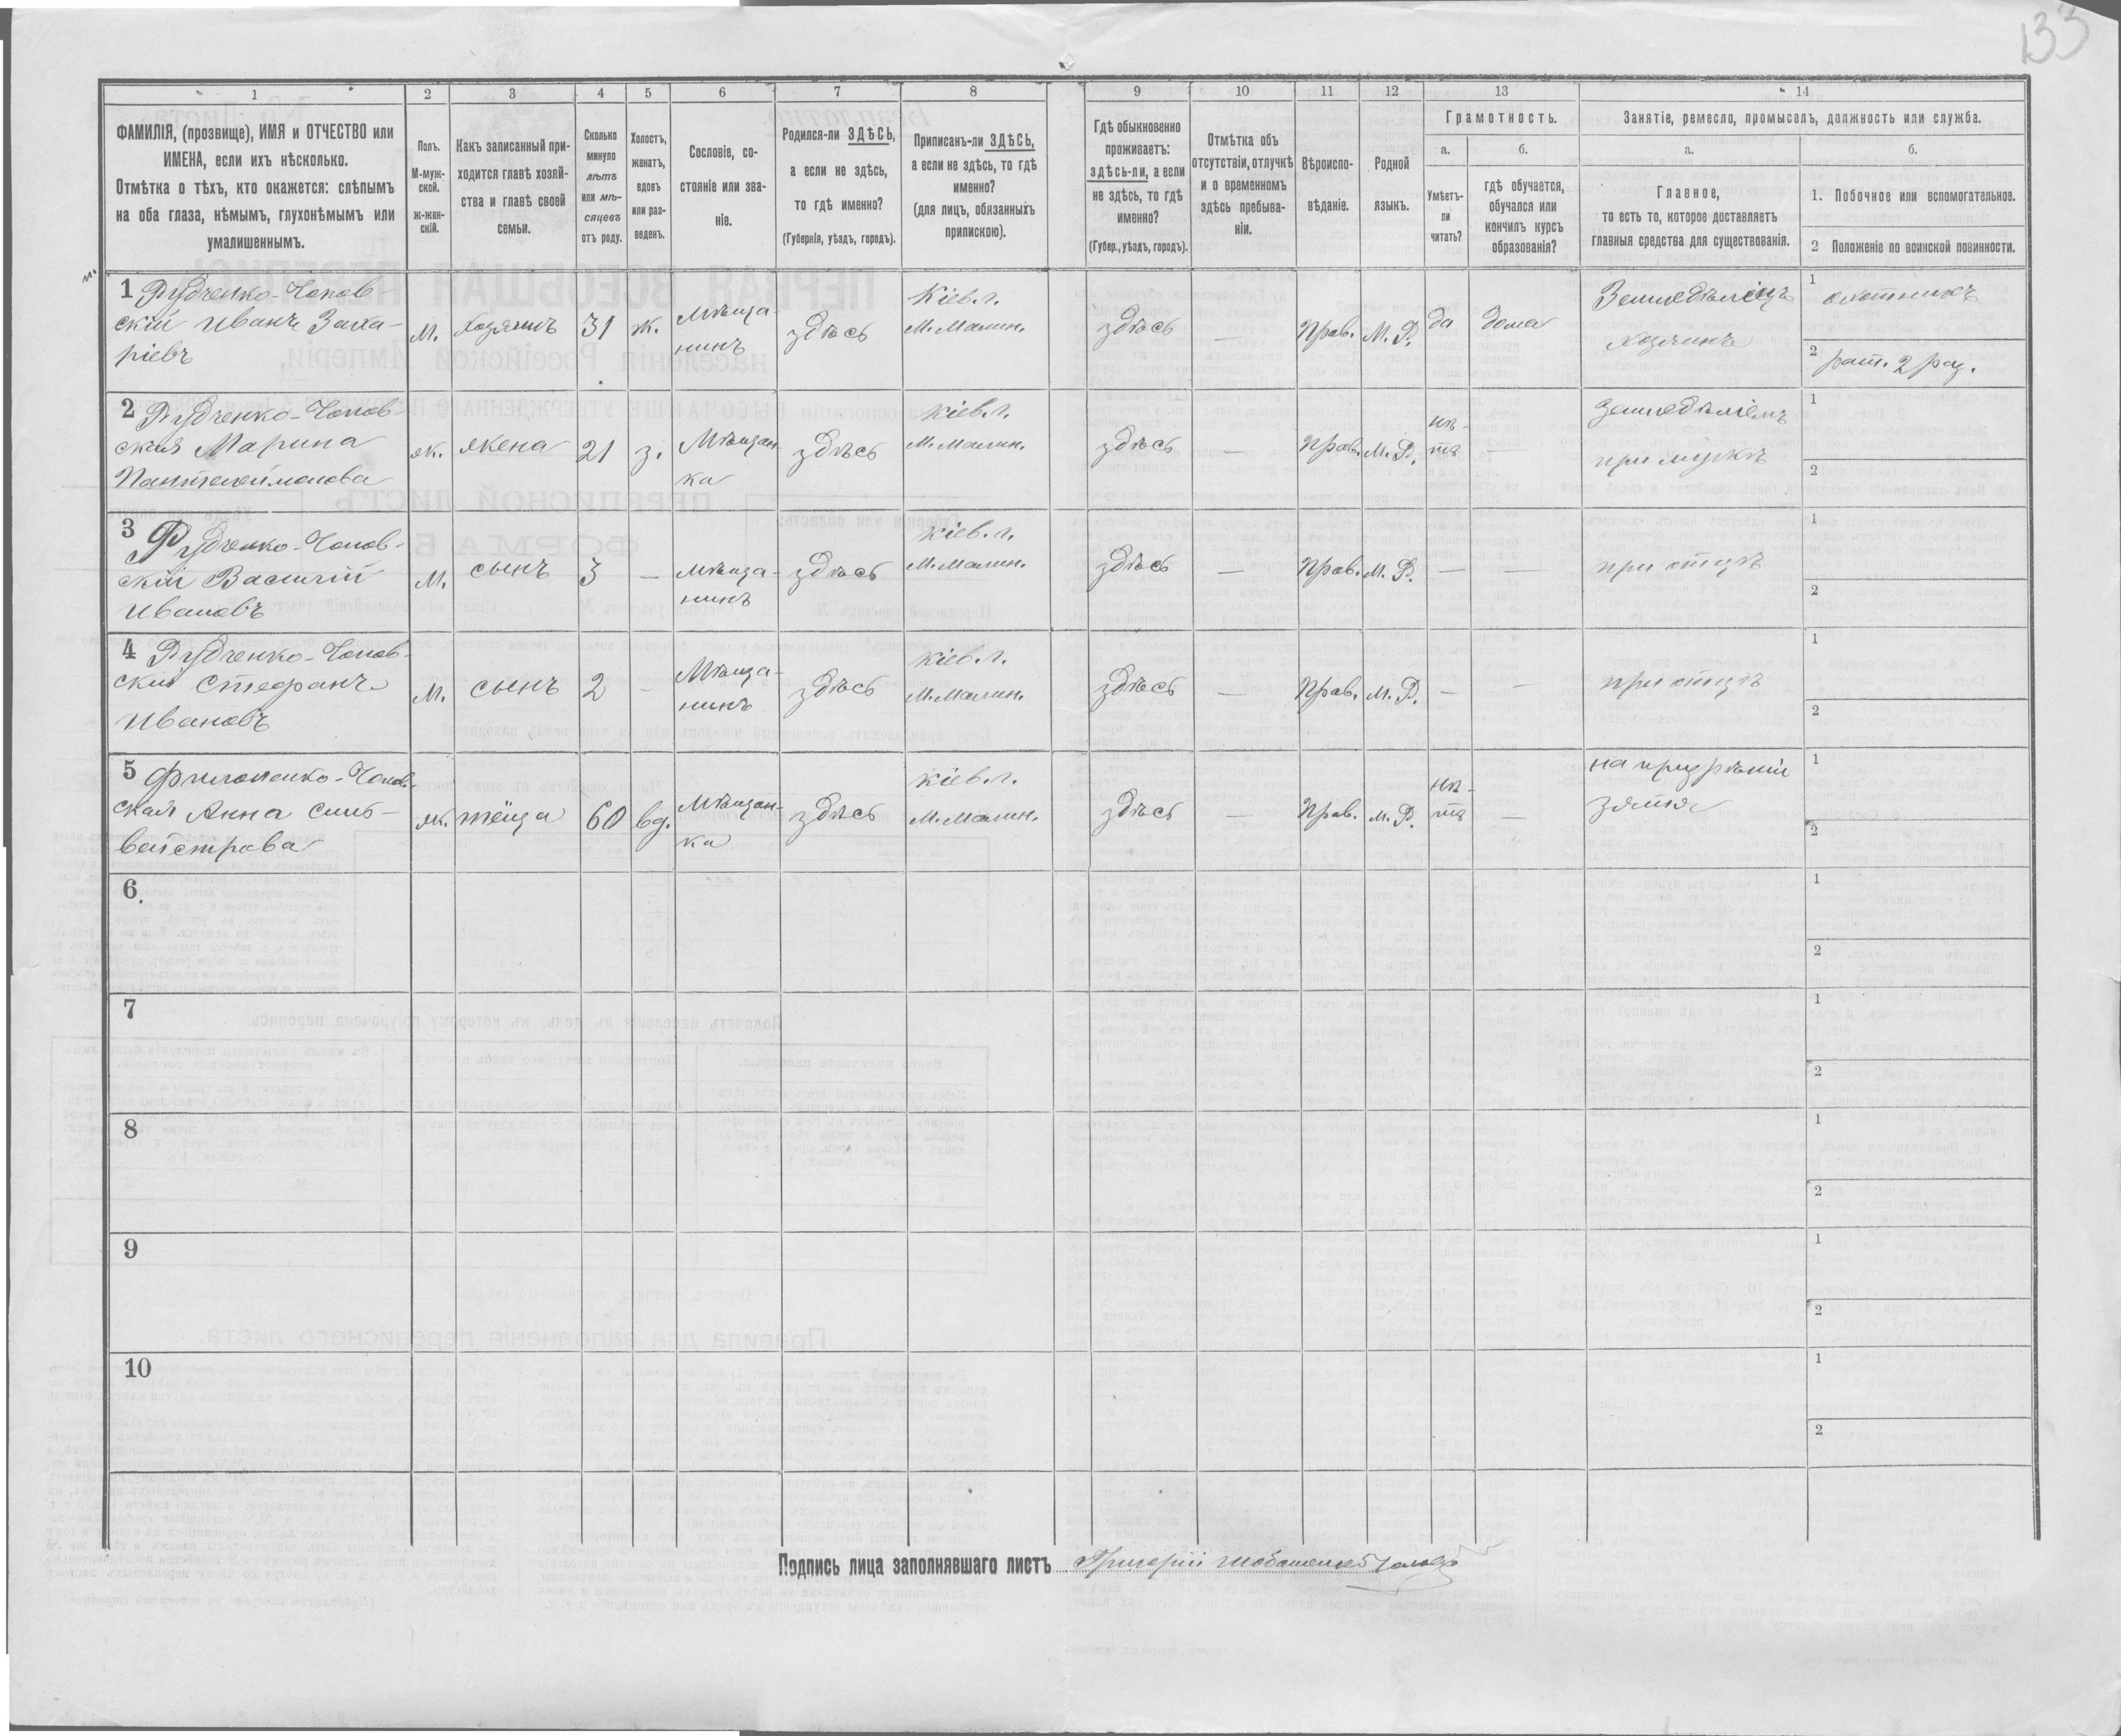 133
1 2 3 4 5 6 7 8 9 10 11 12 13 14
ФАМИЛІЯ, (прозвище), ИМЯ и ОТЧЕСТВО или
ИМЕНА, если ихъ нѣсколько.
Отмѣтка о тѣхъ, кто окажется: слѣпымъ
на оба глаза, нѣмымъ, глухонѣмымъ или
умалишеннымъ.
Полъ.
М-муж-
ской.
ж-жен-
скій.
Какъ записанный при-
ходится главѣ хозяй-
ства и главѣ своей
семьи.
Сколько
минуло
лѣтъ
или мѣ-
сяцевъ
отъ роду.
Холостъ,
женатъ,
вдовъ
или раз-
веденъ.
Сословіе, со-
стояніе или зва-
ніе.
Родился-ли ЗДѢСЬ,
а если не здѣсь,
то гдѣ именно?
(Губернія, уѣздъ, городъ).
Приписанъ-ли ЗДѢСЬ,
а если не здѣсь, то гдѣ
именно?
(для лицъ, обязанныхъ
припискою).
Гдѣ обыкновенно
проживаетъ:
здѣсь-ли, а если
не здѣсь, то гдѣ
именно?
(Губер., уѣздъ, городъ).
Отмѣтка объ
отсутствіи, отлучкѣ
и о временномъ
здѣсь пребыва-
ніи.
Вѣроиспо-
вѣданіе.
Родной
языкъ.
Грамотность.
а.
Умѣетъ-
ли
читать?
б.
гдѣ обучается,
обучался или
кончилъ курсъ
образованія?
Занятіе, ремесло, промыселъ, должность или служба.
а.
Главное,
то есть то, которое доставляетъ
главныя средства для существованія.
б.
1. Побочное или вспомогательное.
2 Положеніе по воинской повинности.
1 Рудченко-Чопов-
скій Иванъ Заха-
ріевъ
м.
Хозяинъ
31
ж.
Мѣща-
нинъ
здѣсь
Кіев. г.
М. Малин.
здѣсь
—
Прав.
М. Р.
да
дома
Земледѣлецъ
хозяинъ
1 охотникъ
2 рат. 2 раз.
2 Рудченко-Чопов-
ская Марина
Пантелеймонова
ж.
жена
21
з.
Мѣщан-
ка
здѣсь
Кіев. г.
М. Малин.
здѣсь
—
Прав.
М. Р.
нѣ-
тъ
—
при мужѣ
1
2
3 Рудченко-Чопов-
скій Василій
Ивановъ
м.
сынъ
3
—
мѣща-
нинъ
здѣсь
Кіев. г.
М. Малин.
здѣсь
—
Прав.
М. Р.
—
—
при отцѣ
1
2
4 Рудченко-Чопов-
скій Стефанъ
Ивановъ
м.
сынъ
2
-
Мѣща-
нинъ
здѣсь
Кіев. г.
М. Малин.
здѣсь
—
Прав.
М. Р.
—
—
при отцѣ
1
2
5 Филоненко-Чопов-
ская Анна Силь-
вейстрова
ж.
тёща
60
вд.
Мѣщан-
ка
здѣсь
Кіев. г.
М. Малин.
здѣсь
—
Прав.
М. Р.
нѣ-
тъ
—
на призрѣніи
зятя
1
2
6.
1
2
7
1
2
8
1
2
9
1
2
10
1
2
Подпись лица заполнявшаго листъ Григорій